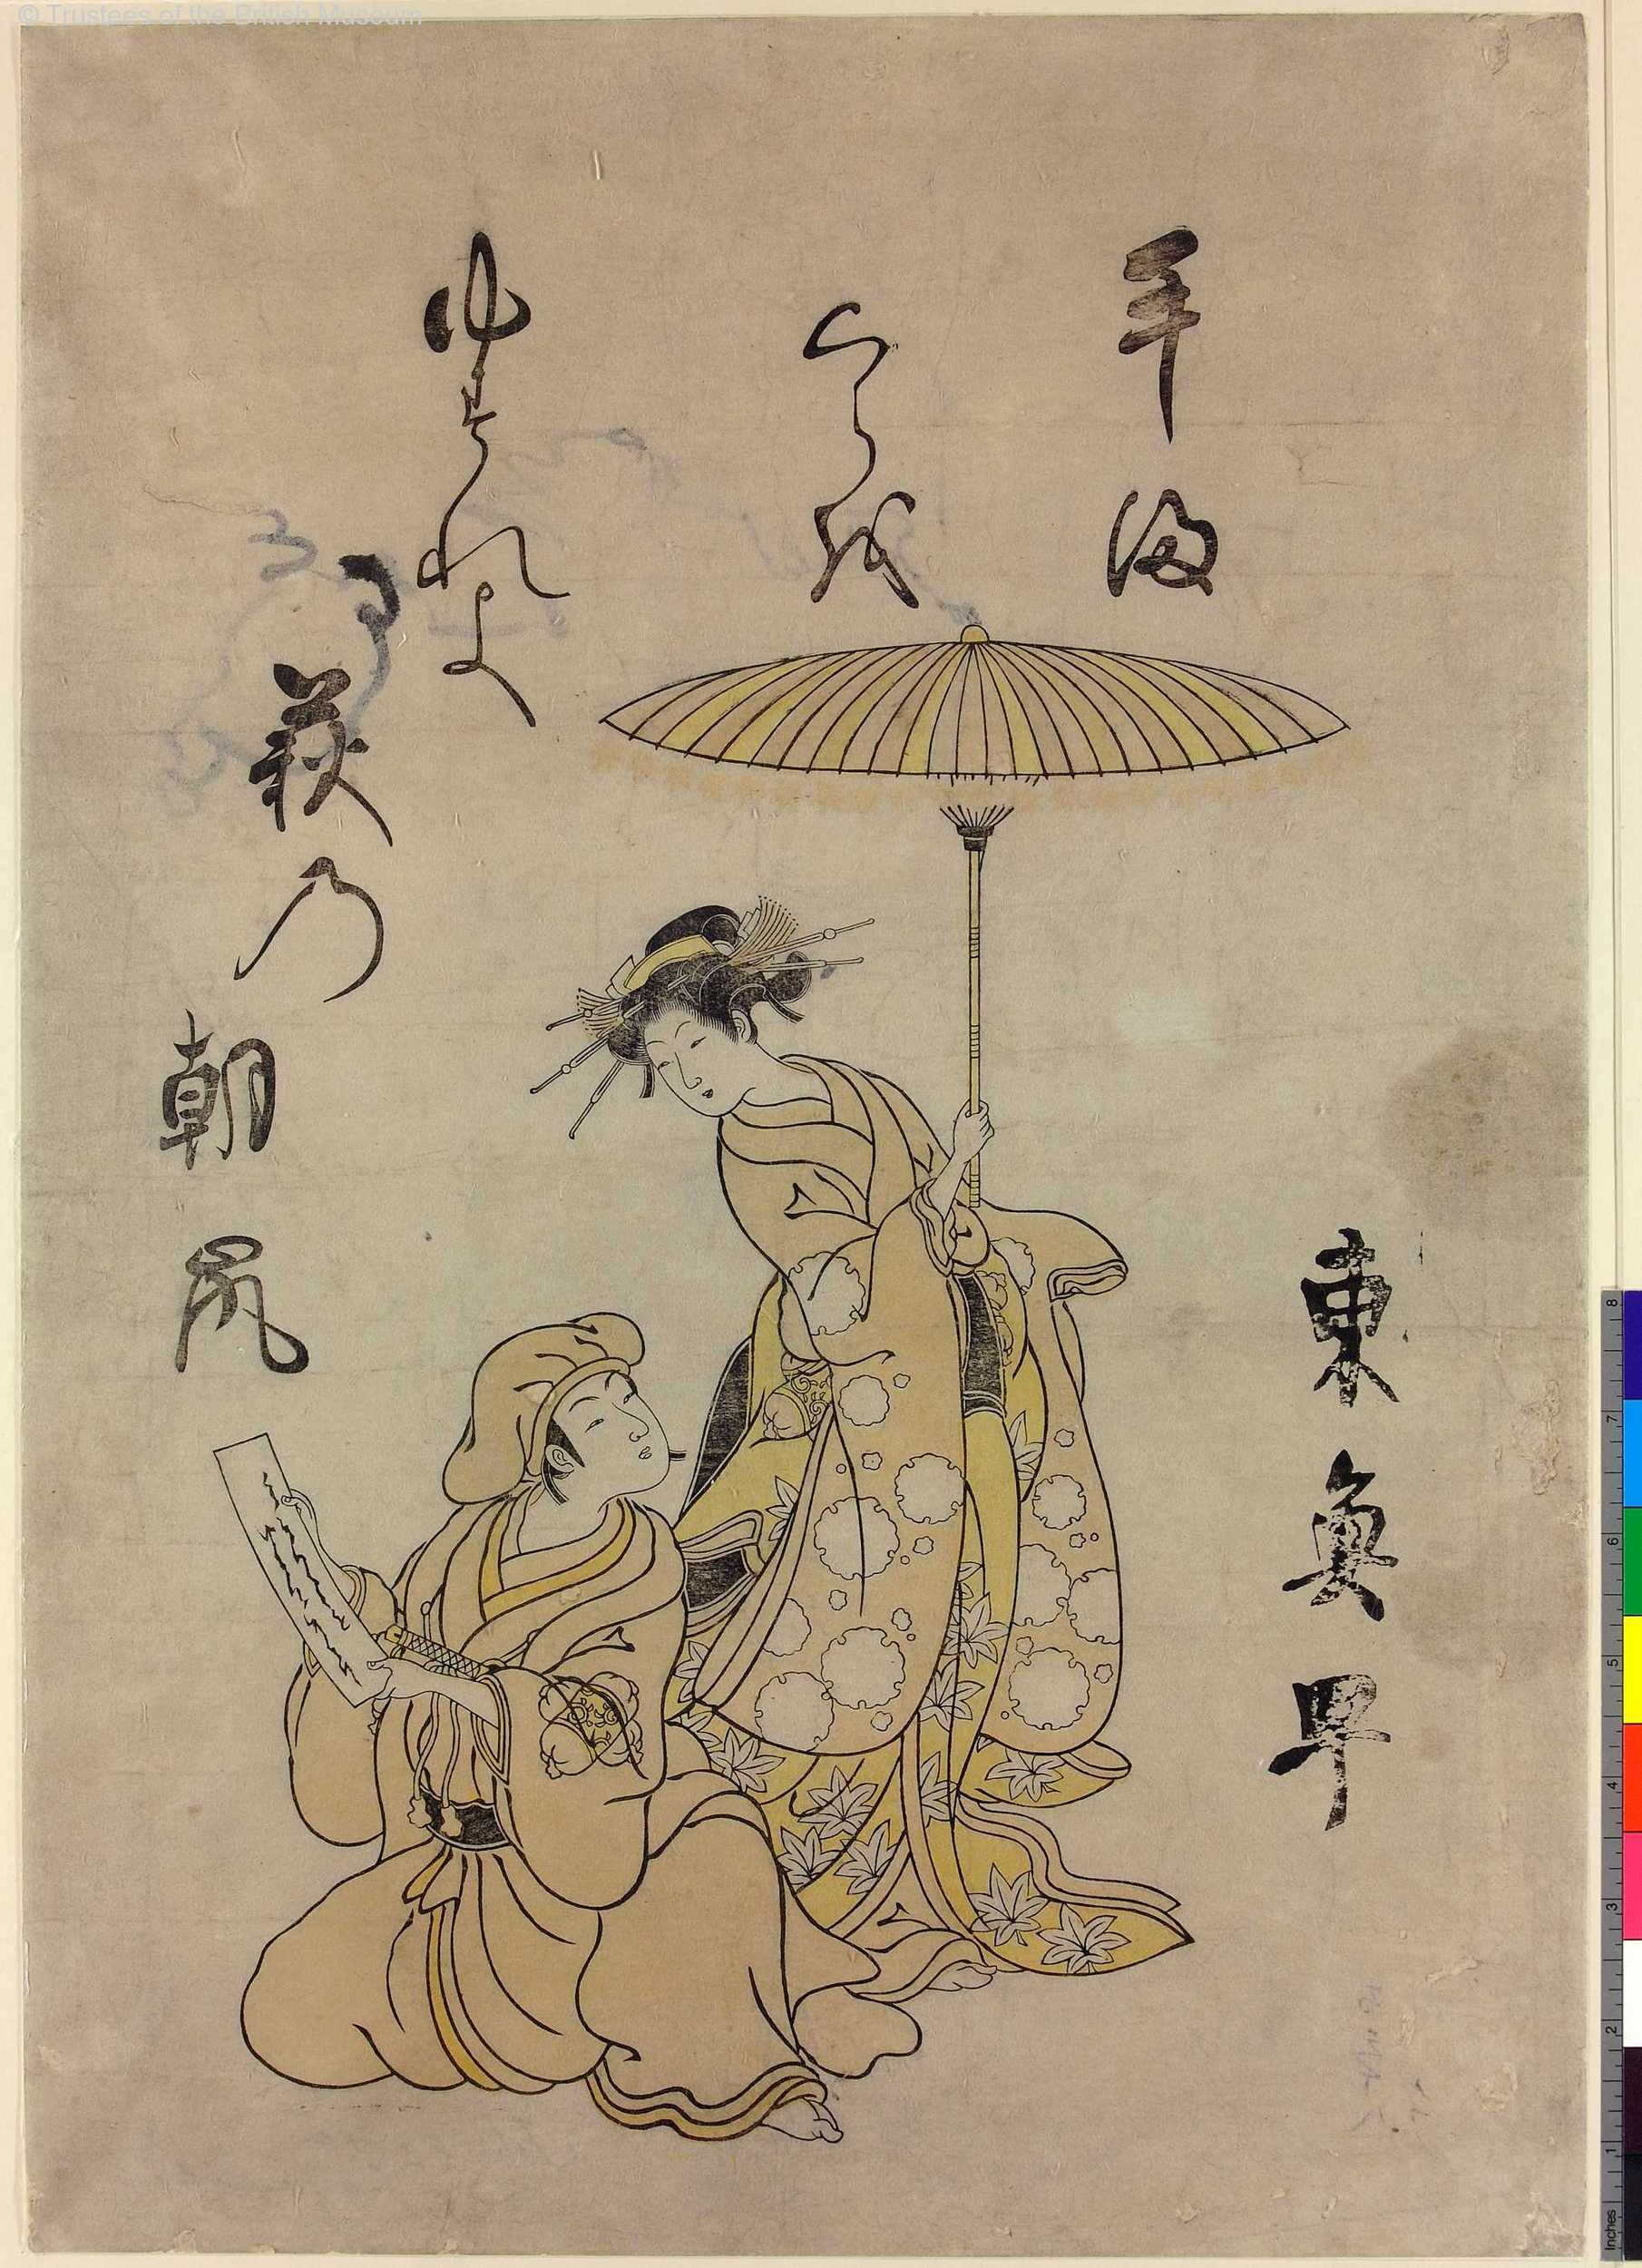 © Trustees of the British Museum
手満
くら越
ゆすれよ
萩乃
朝風
東魚
8
7
6
5
4
3
2
1
Inches